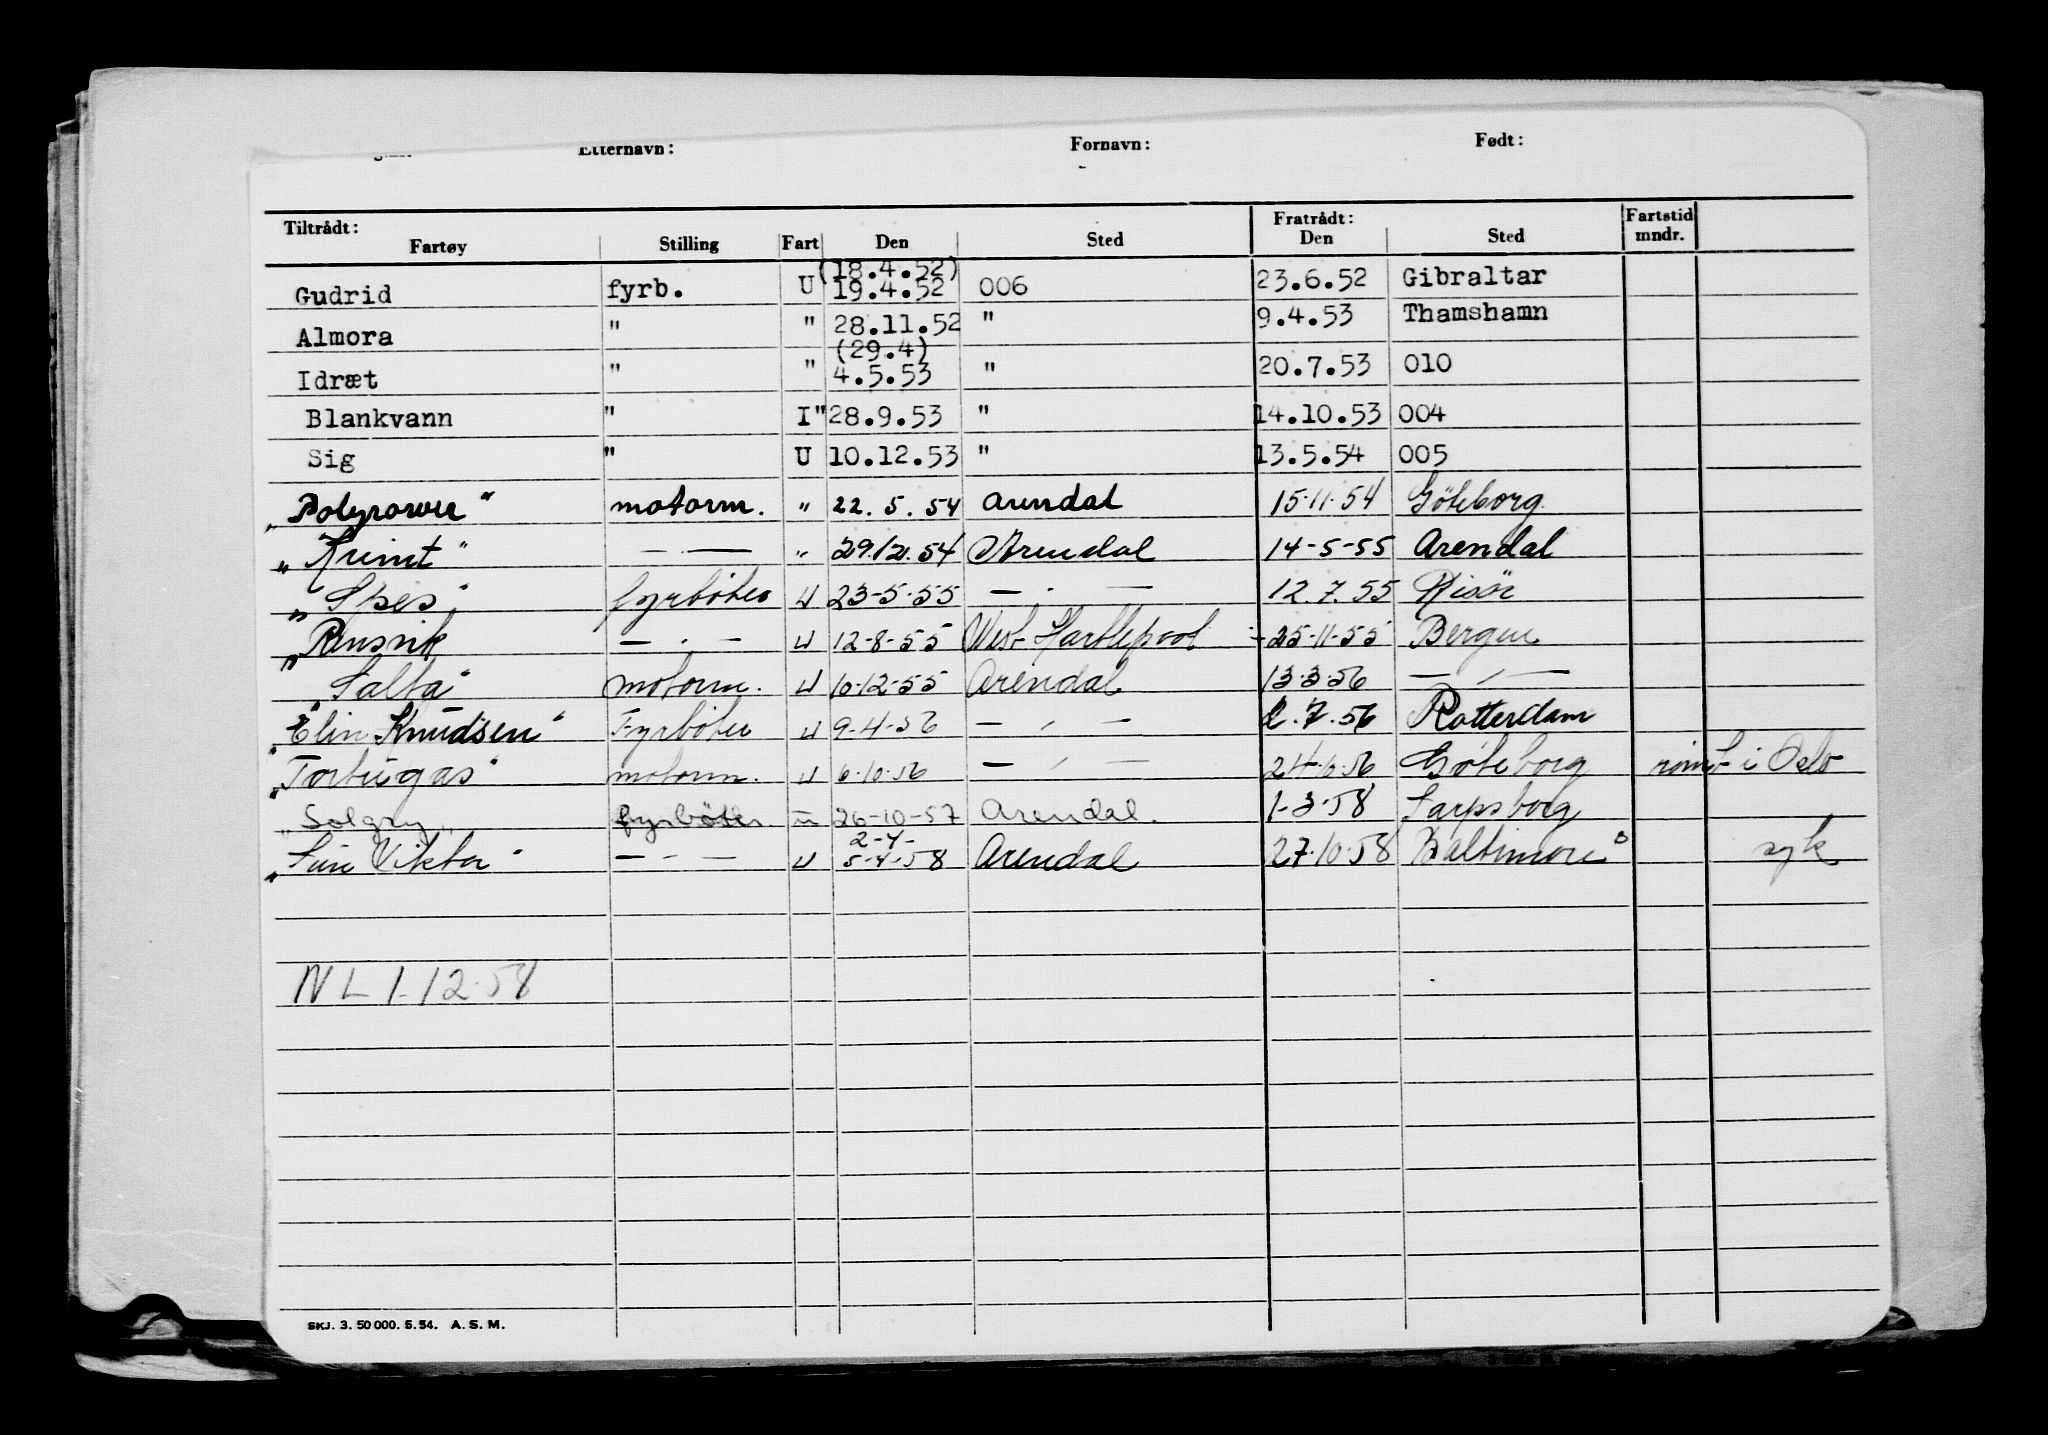 Etternavn: Fornavn: Født:
Tiltrådt: Fartøy Stilling Fart Den Sted Fratrådt: Den Sted Fartstid mndr.
(18.4.52)
Gudrid fyrb. U 19.4.52 006 23.6.52 Gibraltar
Almora " " 28.11.52 " 9.4.53 Thamshamn
(29.4)
Idræt " " 4.5.53 " 20.7.53 010
Blankvann " I" 28.9.53 " 14.10.53 004
Sig " U 10.12.53 " 13.5.54 005
motorm. " 22.5.54 Arendal 15.11.54 Göteborg
— . — " 29.12.54 Arendal 14-5-55 Arendal
"Spes" fyrbøter U 23-5-55 — . — 12.7.55 Risör
— . — U 12-8-55 West Hartlepool 25-11-55 Bergen
"Salta" motorm. U 10-12-55 Arendal 13.3.56 — , —
"Elin Knudsen" Fyrbøter U 9-4-56 — , — 2.7.56 Rotterdam
"Tortugas" motorm. U 6.10.56 — , — Göteborg rømt i Oslo
"Solgry" fyrbøter U 26-10-57 Arendal. 1-3-58 Sarpsborg
2-4-
Viktor" — - — U 5-4-58 Arendal 27.10.58 Baltimore syk
NL 1-12-58
SKJ. 3. 50 000. 5.54. A. S. M.